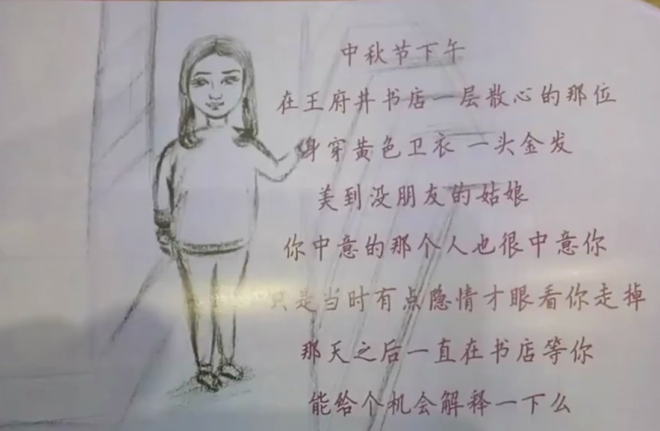 中秋节下午
在王府井书店一层散心的那位
身穿黄色卫衣 一头金发
美到没朋友的姑娘
你中意的那个人也很中意你
只是当时有点隐情才眼看你走掉
那天之后一直在书店等你
能给个机会解释一下么